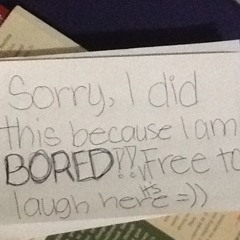 Sorry, I did
this because I am
BORED?!! It's Free to
laugh here =))